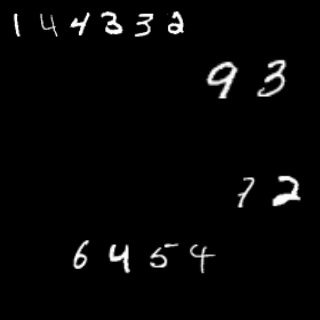 144332
93
72
6454